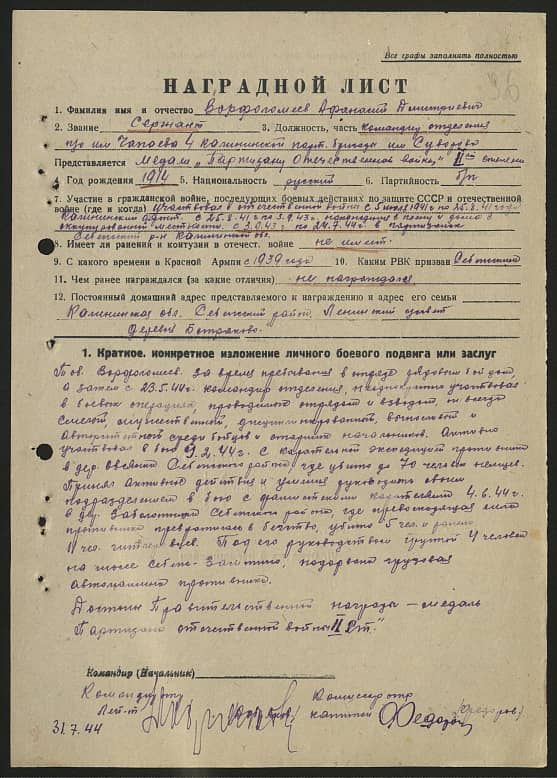 Все графы заполнять полностью
96
НАГРАДНОЙ ЛИСТ
1. Фамилия имя и отчество Ворфоломеев Афанасий Дмитриевич
2. Звание Сержант 3. Должность, часть командир отделения
п/о им Чапаева 4 Калининской парт. бригады им Суворова
Представляется Медаль „Партизану Отечественной войны" IIой степени
4. Год рождения 1914 5. Национальность русский 6. Партийность б/п
7. Участие в гражданской войне, последующих боевых действиях по защите СССР и отечественной
войне (где и когда) Участвовал в отечественной войне с 5 июля 1941 г по 25.8.41 года
Калининский фронт. с 25.8.41 г по 3.9.43г. находился в плену и дома в
оккупированной местности. с 3.9.43 г по 29.7.44г в партизанах
Себежский р-н Калининской обл.
8. Имеет ли ранения и контузии в отечест. войне не имеет.
9. С какого времени в Красной Армии с 1939 года 10. Каким РВК призван Себежский
11. Чем ранее награждался (за какие отличия) не награждался
12. Постоянный домашний адрес представляемого к награждению и адрес его семьи
Калининская обл. Себежский район, Ленинский с/совет
деревня
1. Краткое, конкретное изложение личного боевого подвига или заслуг
Тов. Ворфоломеев. за время пребывания в отряде рядовым бойцом,
а затем с 23.5.44г. командир отделения, неоднократно участвовал
в боевых операциях, проводимых отрядом и взводом, он всегда
смелый, мужественный, дисциплинированный, выносливый и
авторитетный среди бойцов и старших начальников. Активно
участвовал в бою 9.2.44г. с карательной экспедицией противника
в дер. Себежского района, где убито до 70 человек немцев.
Принял активное действия и умения руководить своим
подразделением в бою с фашистскими карателями 4.6.44г.
в дер. Заболотки Себежского района, где превосходящая сила
противника превратилась в бегство, убито 5 чел. и ранено
11 чел. гитлеровцев. Под его руководством группой 4 человек
на шоссе Себеж-Заситино, подорвана грузовая
автомашина противника.
Достоин Правительственной награды — медаль
"Партизана отечественной войны II ст."
Командир (Начальник)
Командир п/о Комиссар п/о
Лей-т капитан Федоров (Федоров)
31.7.44